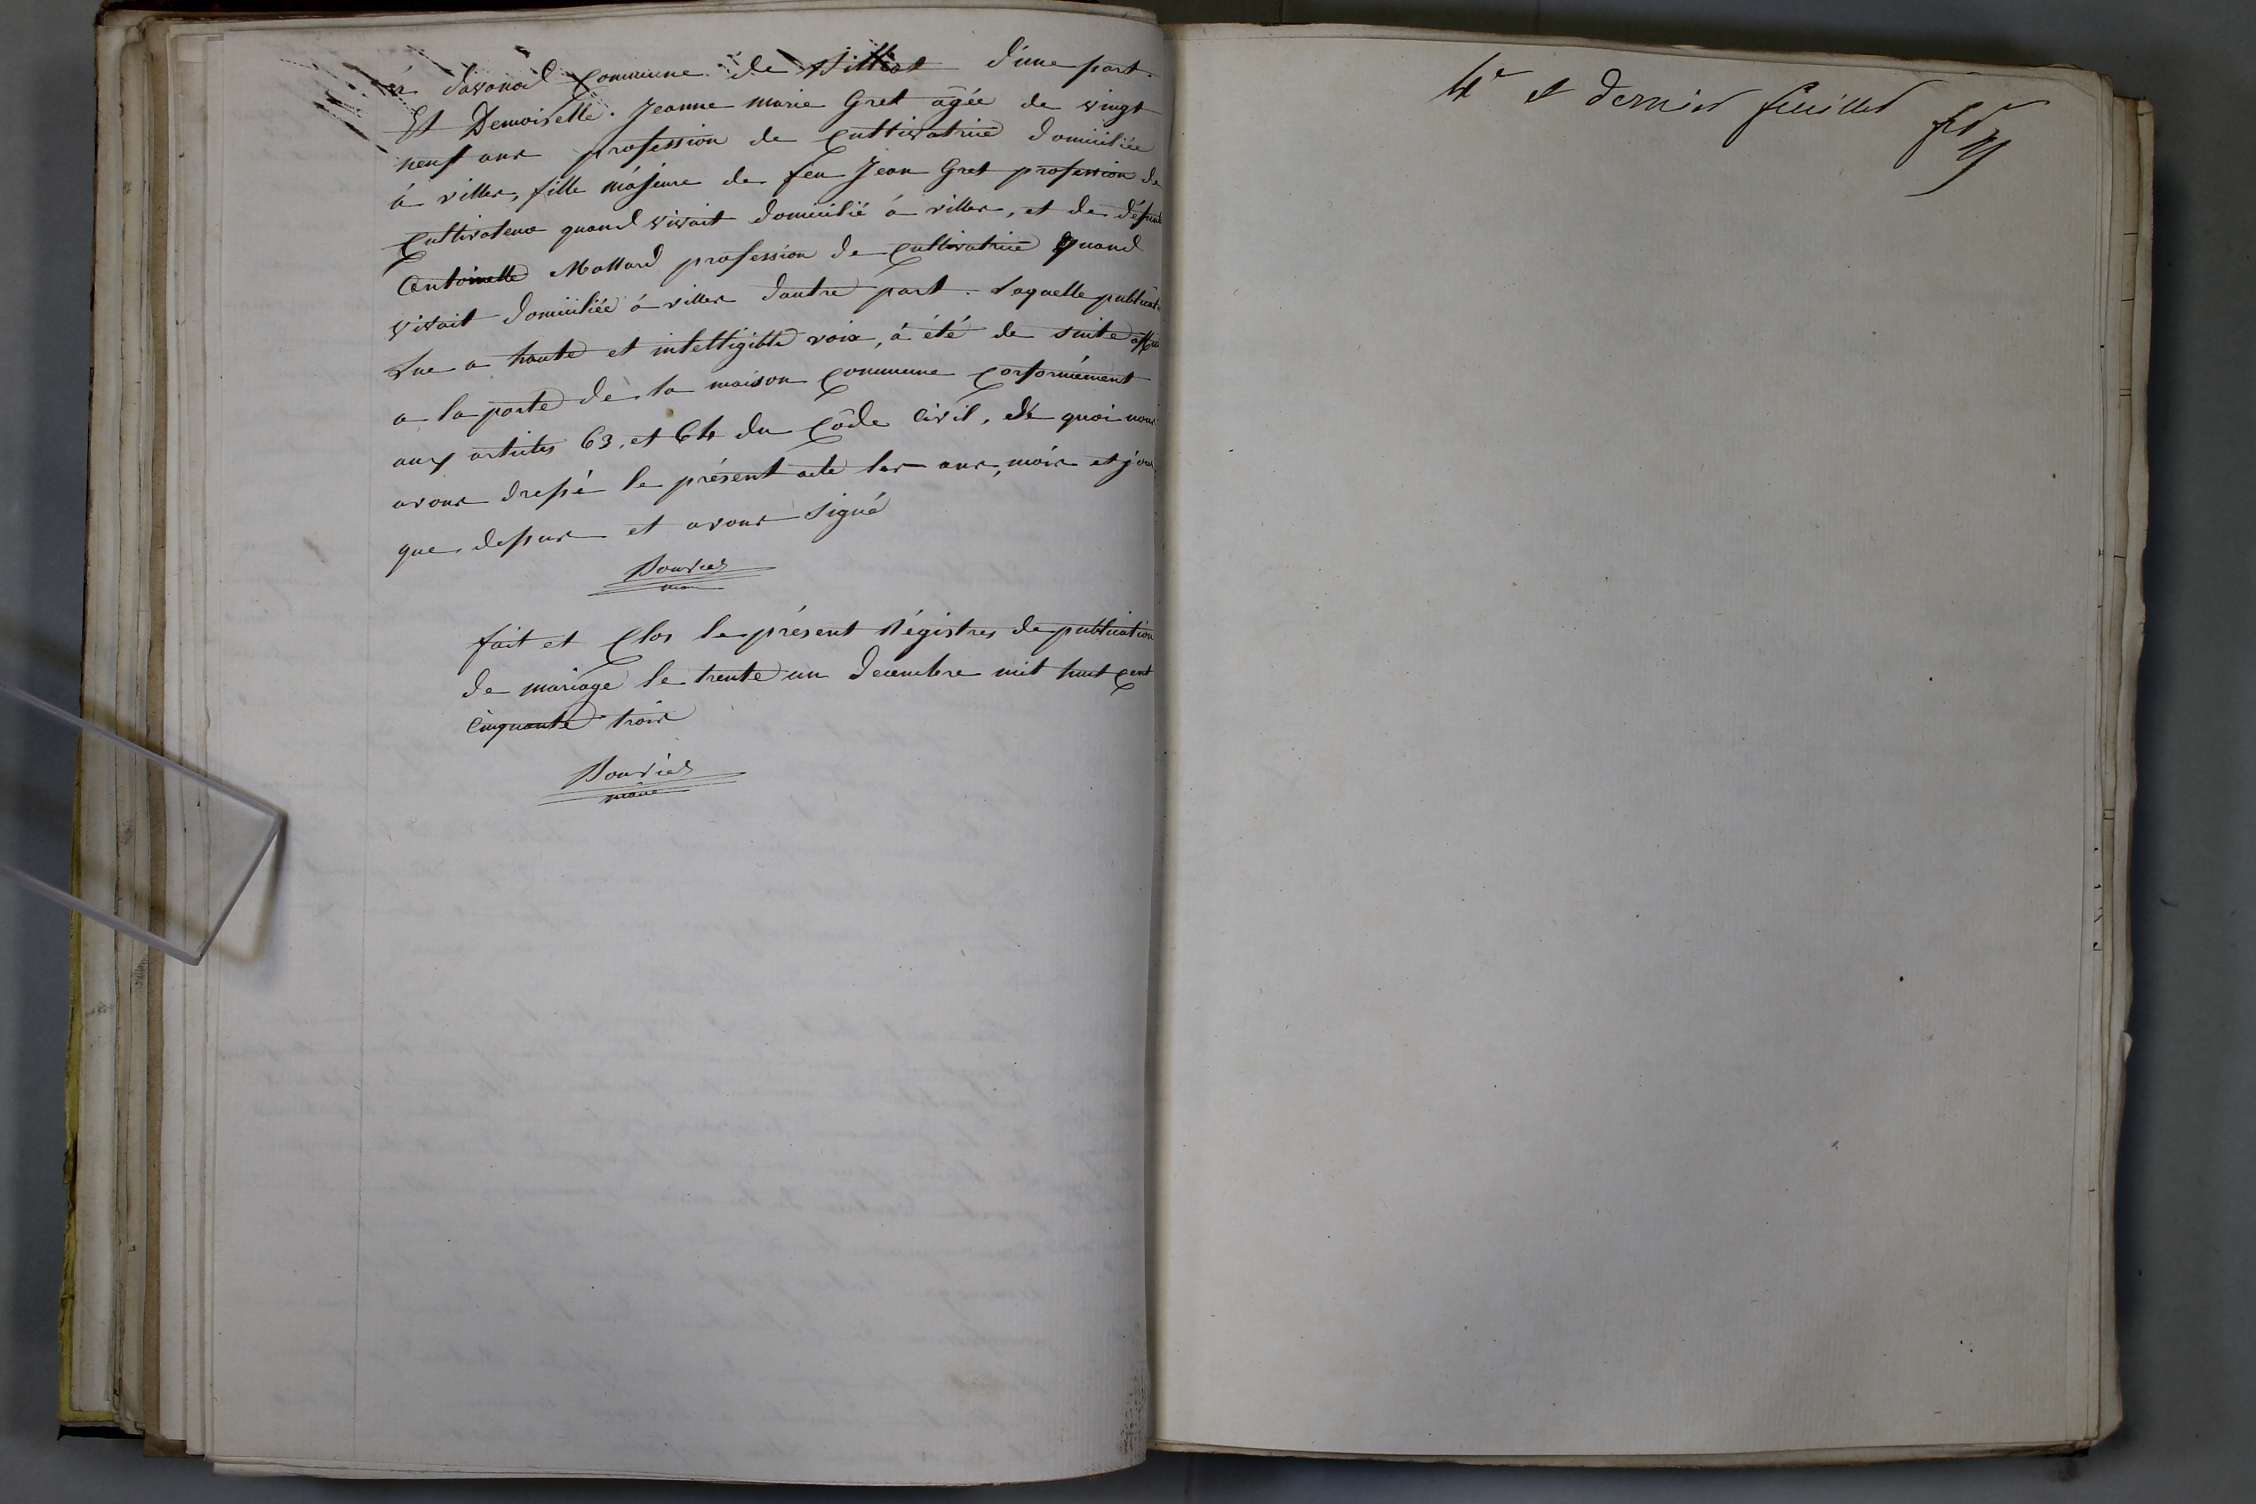 à davanod commune de Billiat d'une part.
Et Demoiselle. Jeanne marie Gret âgée de vingt
neuf ans profession de cultivatrice domiciliée
à villes, fille majeure de feu Jean Gret profession de
cultivateur quand vivait domicilié à villes, et de défunte
Antoinette Mollard profession de cultivatrice quand
vivait domiciliée à villes dautre part. Laquelle publicat
Lue a haute et intelligible voix, à été de suite
a la porte de la maison commune conformément
aux articles 63, et 64 du Code Civil, de quoi nous
avons dressé le présent acte les ans, mois et jour
que dessus et avons signé
maire
fait et Clos le présent Régistres de publication
de mariage le trente un decembre mil huit cent
Cinquante trois
maire
4e et dernier feuillet